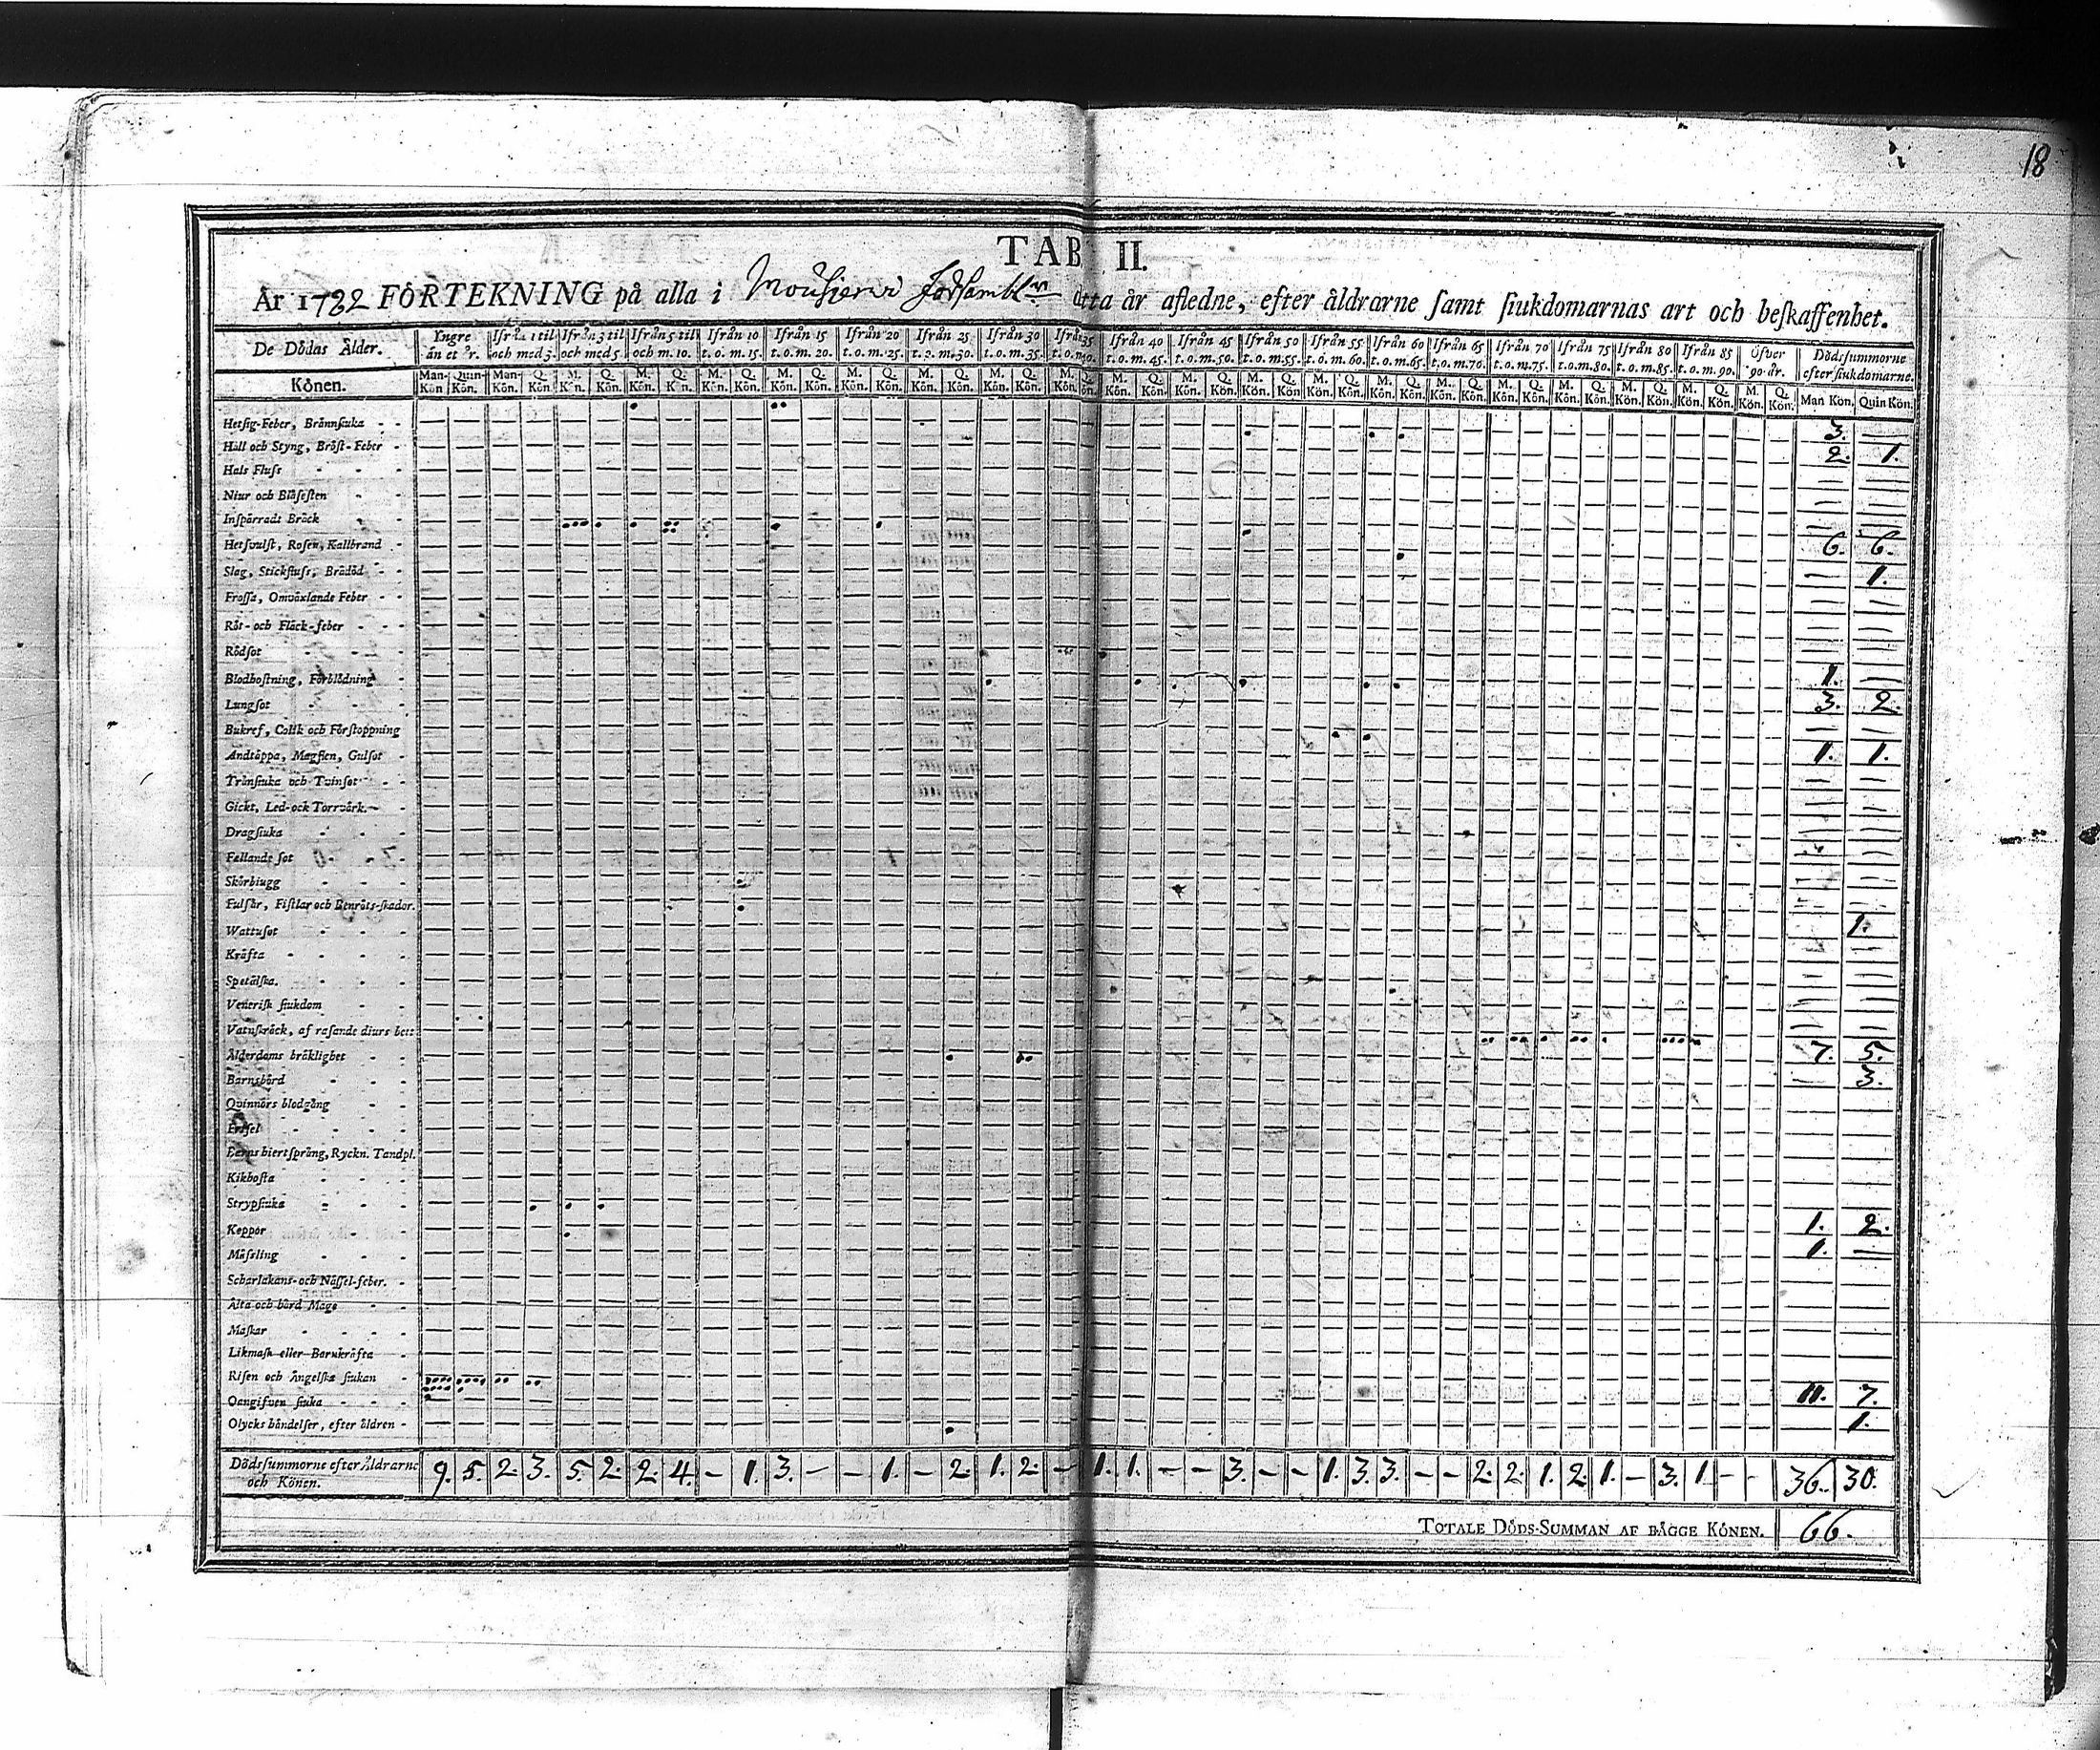 18
TAB II.
År 1782 FÖRTEKNING på alla i Försambl. detta år afledne, efter åldrarne samt siukdomarnas art och beskaffenhet.
De Dödas Ålder. Yngre än et år. Ifrån 1 til och med 3. Ifrån 3 til och med 5. Ifrån 5 til och m. 10. Ifrån 10 t. o. m. 15. Ifrån 15 t. o. m. 20. Ifrån 20 t. o. m. 25. Ifrån 25 t. o. m. 30. Ifrån 30 t. o. m. 35. Ifrån 35 t. o. m. 40. Ifrån 40 t. o. m. 45. Ifrån 45 t. o. m. 50. Ifrån 50 t. o. m. 55. Ifrån 55 t. o. m. 60. Ifrån 60 t. o. m. 65. Ifrån 65 t. o. m. 70. Ifrån 70 t. o. m. 75. Ifrån 75 t. o. m. 80. Ifrån 80 t. o. m. 85. Ifrån 85 t. o. m. 90. Öfver 90 år. Dödssummorne efter siukdomarne.
Könen. Man-Kön Quin-Kön. Man-Kön. Q. Kön. M. Kön. Q. Kön. M. Kön. Q. Kön. M. Kön. Q. Kön. M. Kön. Q. Kön. M. Kön. Q. Kön. M. Kön. Q. Kön. M. Kön. Q. Kön. M. Kön. Q. Kön. M. Kön. Q. Kön. M. Kön. Q. Kön. M. Kön. Q. Kön. M. Kön. Q. Kön. M. Kön. Q. Kön. M. Kön. Q. Kön. M. Kön. Q. Kön. M. Kön. Q. Kön. M. Kön. Q. Kön. M. Kön. Q. Kön. M. Kön. Q. Kön. Man Kön. Quin Kön.
Hetsig-Feber, Brännsiuka 3. —
Håll och Styng, Bröst-Feber 2. 1.
Hals Fluss
Niur och Blåsesten
Inspärradt Bråck
Hetsvulst, Rosen, Kallbrand 6. 6.
Slag, Stickfluss, Brådöd 1.
Frossa, Omväxlande Feber
Röt- och Fläck-feber
Rödsot
Blodhostning, Förblödning 1.
Lungsot 3. 2.
Bukref, Colik och Förstoppning
Andtäppa, Magsien, Gulsot 1. 1.
Trånsiuka och Tvinsot
Gickt, Led-ock Torrvärk.
Dragsiuka
Fallande sot
Skörbiugg
Fulsår, Fistlar och Benröts-skador.
Wattusot 1.
Kräfta
Spetälska.
Venerisk siukdom
Vatuskräck, af rasande diurs bett
Ålderdoms bräklighet 7. 5.
Barnsbörd 3.
Quinnors blodgång
Frisel
Barns hiertsprång, Ryckn. Tandpl.
Kikhosta
Strypsiuka
Koppor 1. 2.
Mässling 1. —
Scharlakans- och Nässel-feber.
Älta och hård Mage
Maskar
Likmask eller Barnkräfta
Risen och Ängelska siukan
Oangifven siuka 11. 7.
Olycks händelser, efter åldren 1.
Dödssummorne efter Åldrarne 9. 5. 2. 3. 5. 2. 2. 4. – 1. 3. – – 1. – 2. 1. 2. – 1. 1. – – 3. – – 1. 3. 3. – – 2. 2. 1. 2. 1. – 3. 1. – – 36. 30.
och Könen.
TOTALE DÖDS-SUMMAN AF BÅGGE KÖNEN. 66.